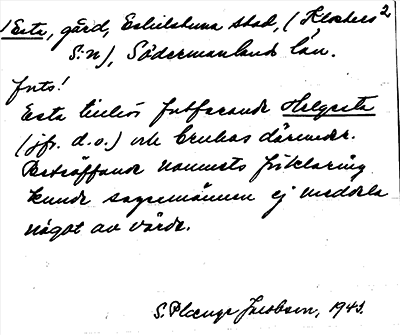 1 Esta, gård, Eskilstuna stad, (Klosters 2
S:n), Södermanlands län.
forts!
Esta tillhör fortfarande Helgesta
(jfr. d.o.) och brukas därunder.
Beträffande namnets förklaring
kunde sagesmännen ej meddela
något av värde.
S. Plænge Jacobson, 1943.